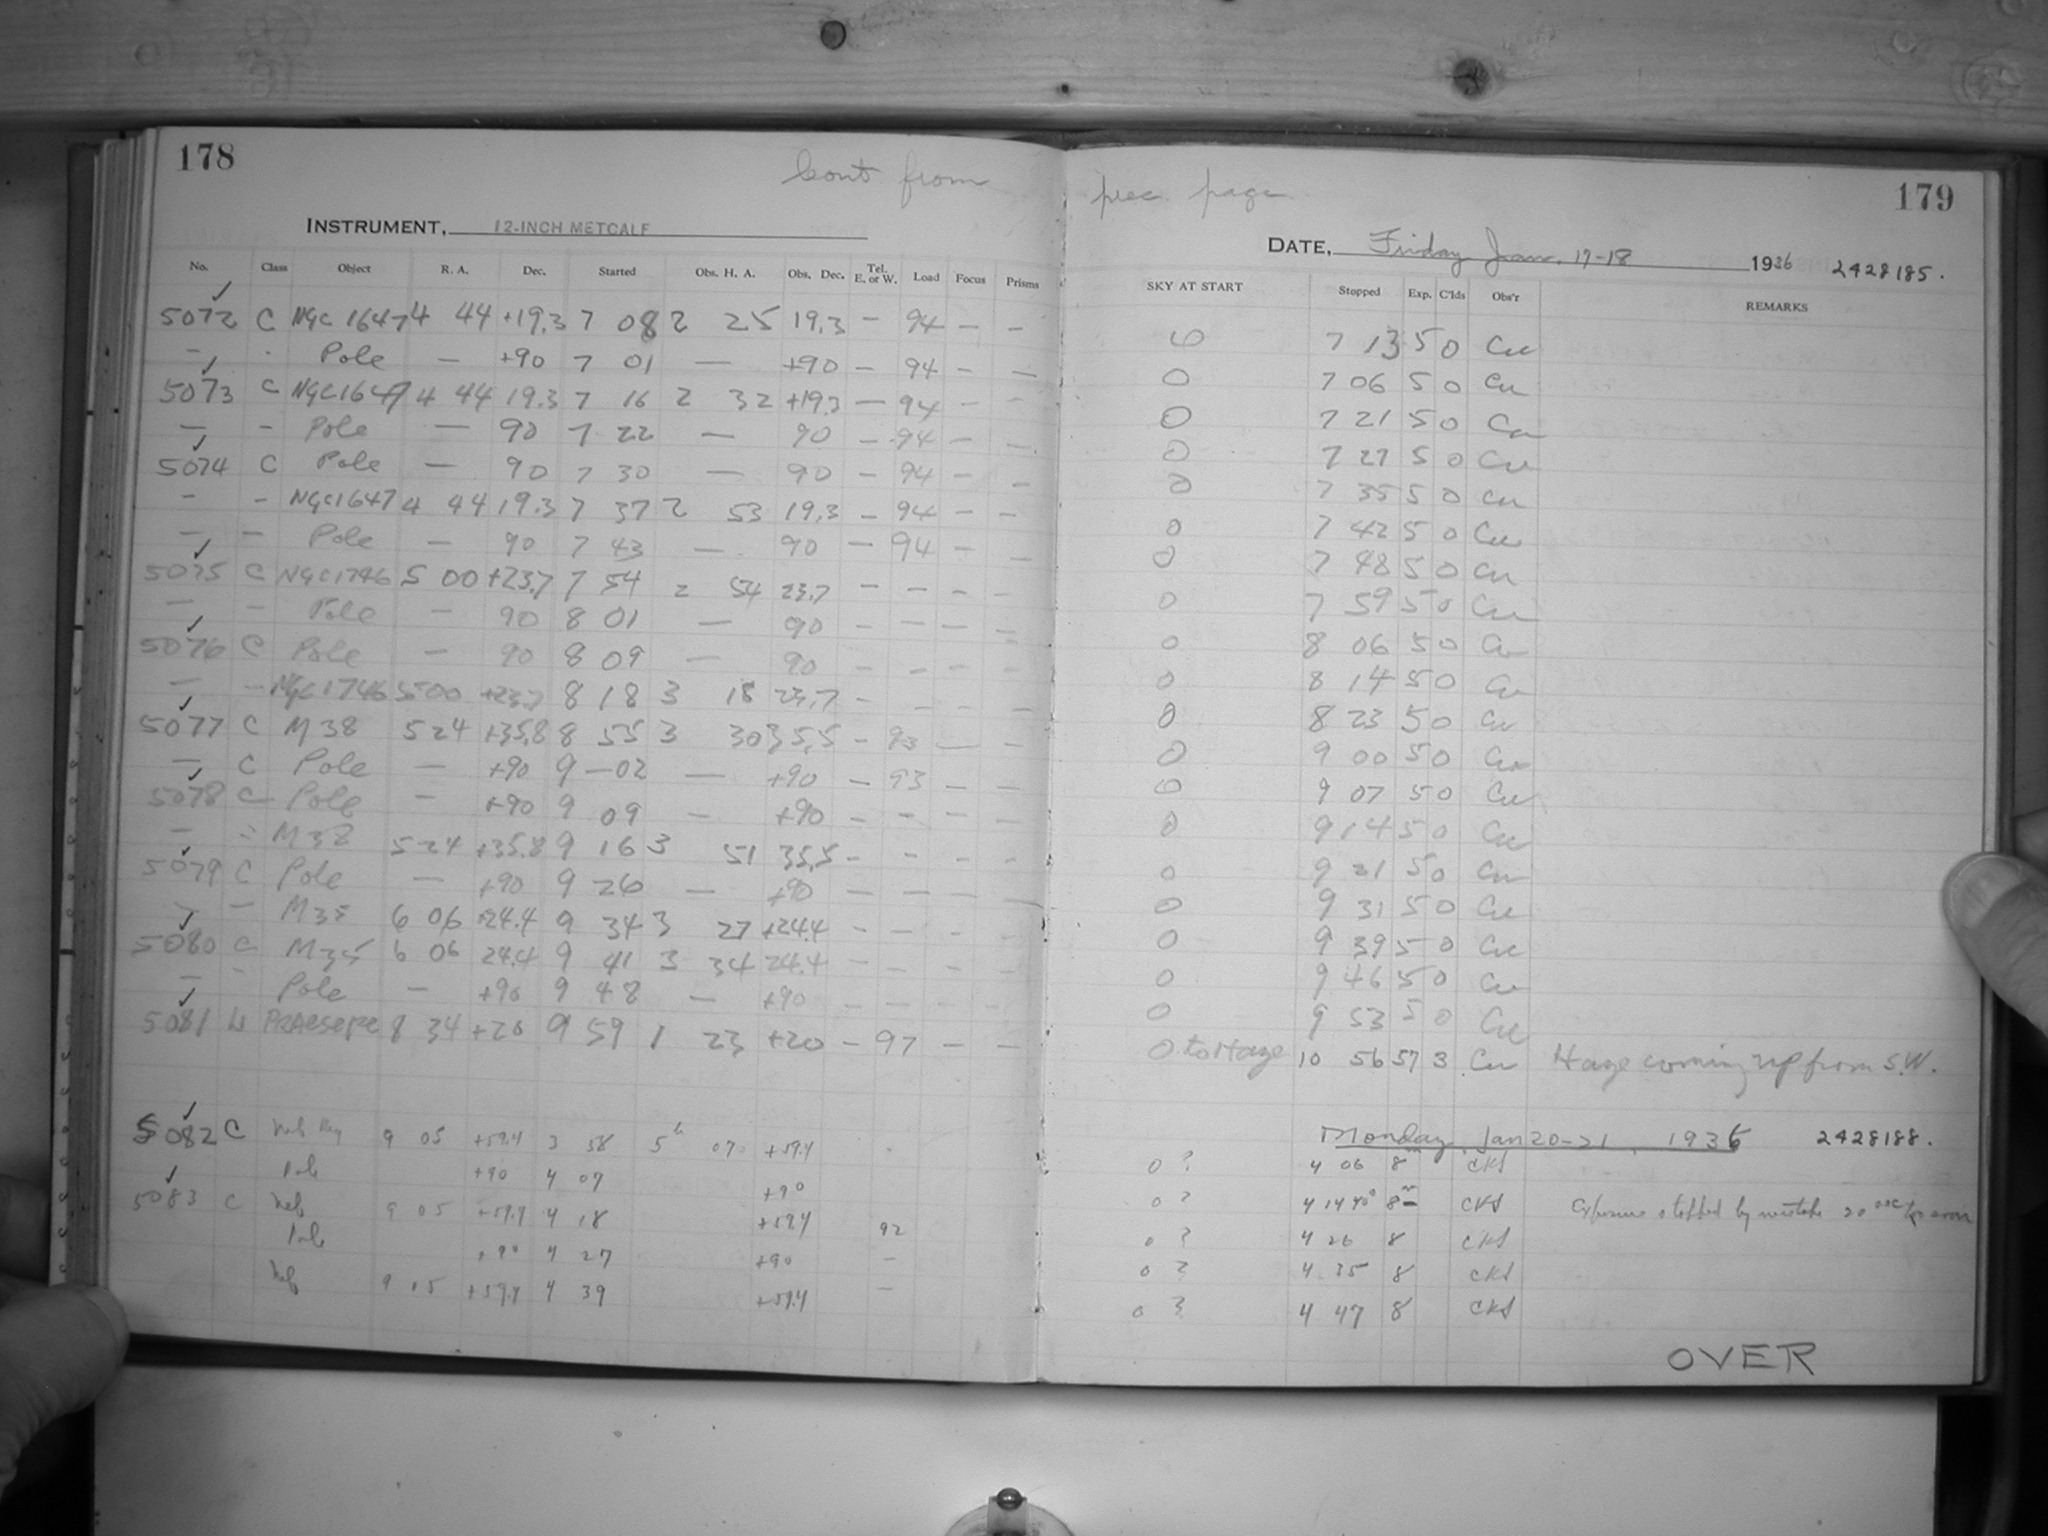 178
Cont. from prec. page
179
INSTRUMENT, 12-INCH METCALF
DATE, Friday Jan. 17-18 1936 2428185.
No. Class Object R. A. Dec. Started Obs. H. A. Obs. Dec. Tel. E. or W. Load Focus Prisms SKY AT START Stopped Exp. C'lds Obs'r REMARKS
5072 C NGC 1647 4 44 +19.3 7 08 2 25 19.3 - 94 - - 0 7 13 5 0 Cu
- - Pole - +90 7 01 - +90 - 94 - - 0 7 06 5 0 Cu
5073 C NGC1647 4 44 19.3 7 16 2 32 +19.3 - 94 - - 0 7 21 5 0 Cu
- - Pole - 90 7 22 - 90 - 94 - - 0 7 27 5 0 Cu
5074 C Pole - 90 7 30 - 90 - 94 - - 0 7 35 5 0 Cu
- - NGC1647 4 44 19.3 7 37 2 53 19.3 - 94 - - 0 7 42 5 0 Cu
- - Pole - 90 7 43 - 90 - 94 - - 0 7 48 5 0 Cu
5075 C NGC1746 5 00 +23.7 7 54 2 54 23.7 - - - - 0 7 59 5 0 Cu
- - Pole - 90 8 01 - 90 - - - - 0 8 06 5 0 Cu
5076 C Pole - 90 8 09 - 90 - - - - 0 8 14 5 0 Cu
- - NGC1746 5 00 +23.7 8 18 3 18 23.7 - - - - 0 8 23 5 0 Cu
5077 C M38 5 24 +35.8 8 55 3 30 35.5 - 93 - - 0 9 00 5 0 Cu
- C Pole - +90 9 -02 - +90 - 93 - - 0 9 07 5 0 Cu
5078 C Pole - +90 9 09 - +90 - - - - 0 9 14 5 0 Cu
- - M38 5 24 +35.8 9 16 3 51 35.5 - - - - 0 9 21 5 0 Cu
5079 C Pole - +90 9 26 - +90 - - - - 0 9 31 5 0 Cu
- - M35 6 06 +24.4 9 34 3 27 +24.4 - - - - 0 9 39 5 0 Cu
5080 C M35 6 06 24.4 9 41 3 34 24.4 - - - - 0 9 46 5 0 Cu
- - Pole - +90 9 48 - +90 - - - - 0 9 53 5 0 Cu
5081 L Praesepe 8 34 +20 9 59 1 23 +20 - 97 - - 0 to Haze 10 56 57 3 Cu Haze coming up from S.W.
Monday Jan 20-21, 1936 2428188.
5082 C 9 05 +59.4 3 58 5h 07 +59.4 0 ? 4 06 8m CKS
Pole +90 4 07 +90 0 ? 4 14 40s 8m CKS Exposure stopped by mistake 20 sec too soon
5083 C Neb 9 05 +59.4 4 18 +59.4 92 0 ? 4 26 8 CKS
Pole +90 4 27 +90 - 0 ? 4 35 8 CKS
Neb 9 05 +59.4 4 39 +59.4 - 0 ? 4 47 8 CKS
OVER